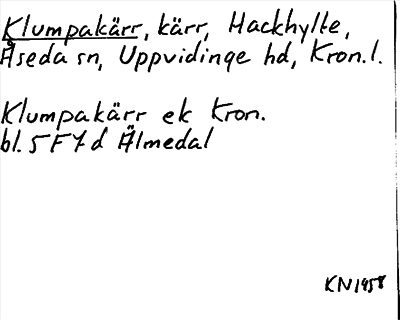 Klumpakärr, kärr, Hackhylte,
Åseda sn, Uppvidinge hd, Kron.l.
Klumpakärr ek Kron.
bl. 5F7d Älmedal
KN1958